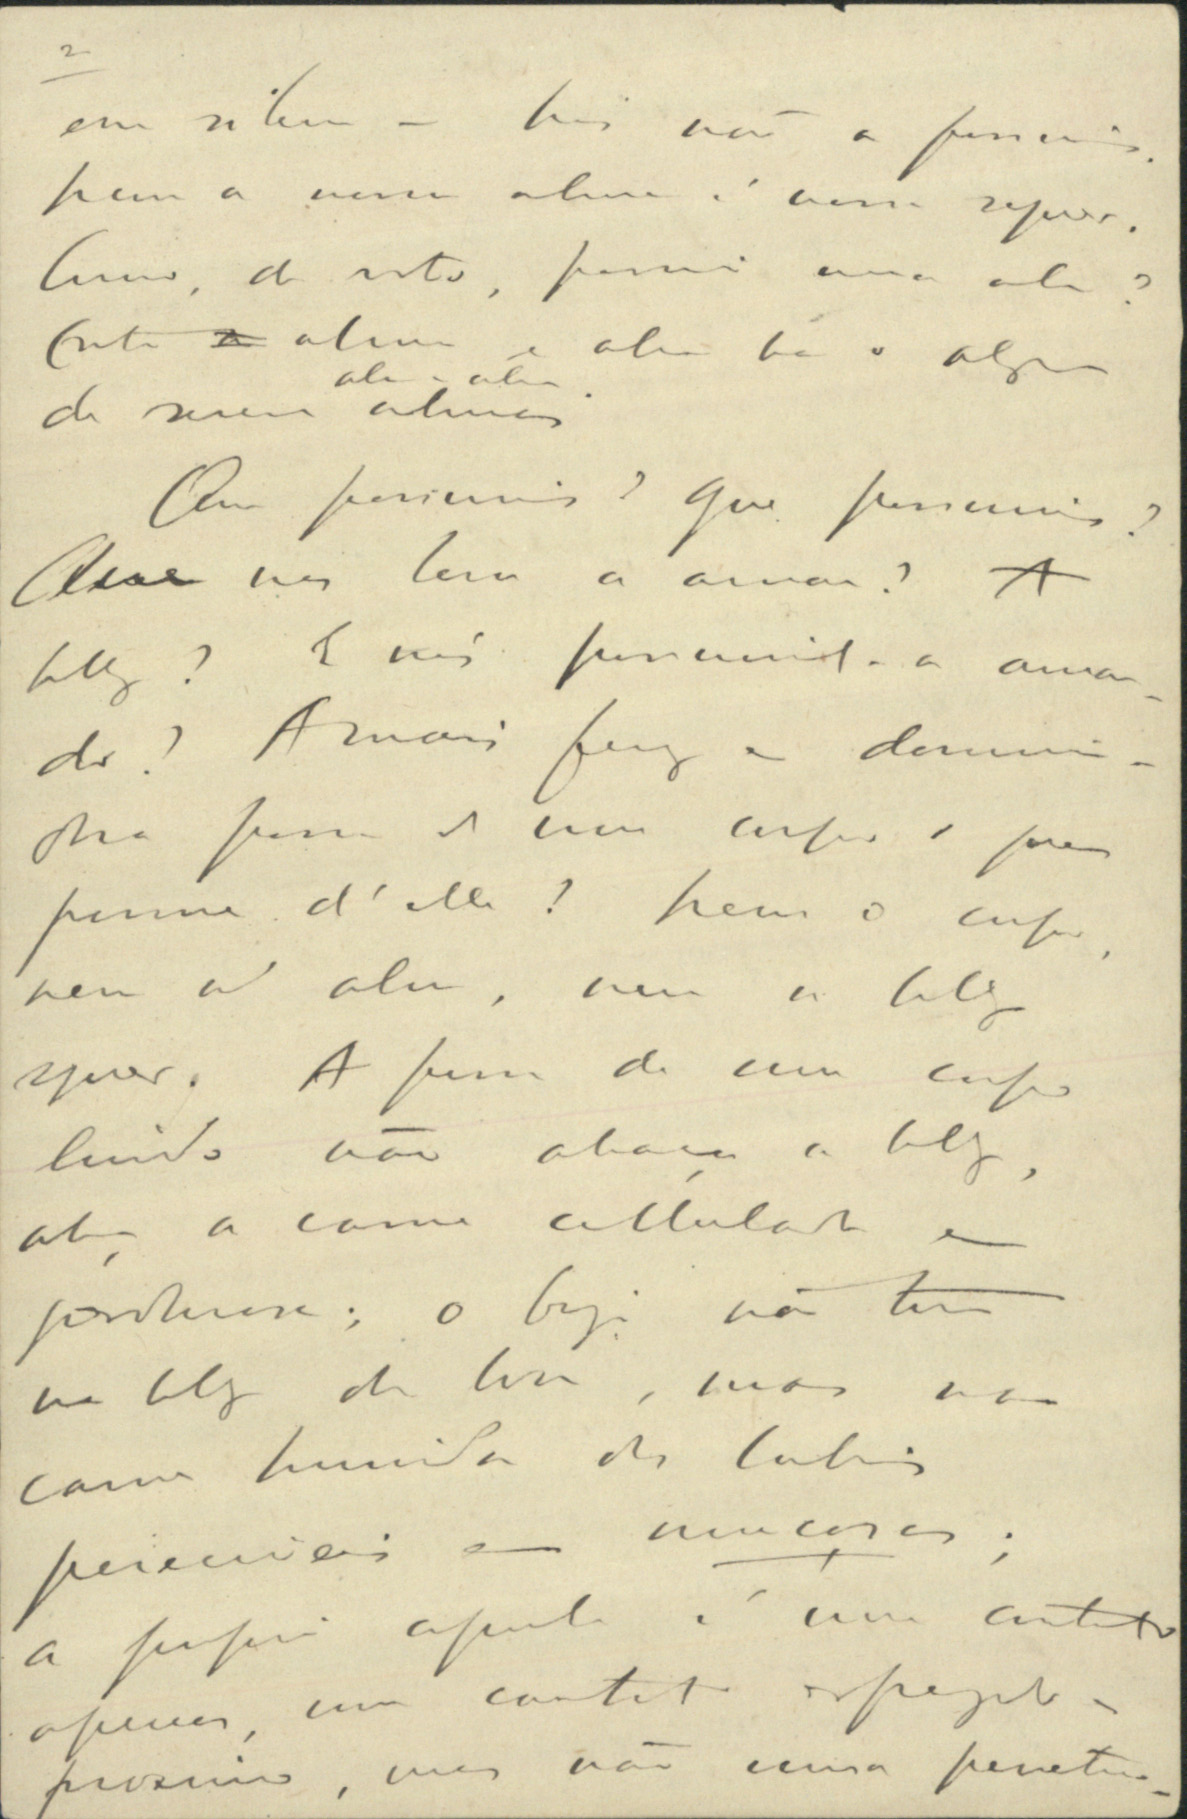 2
em silencio — Pois não a possuimos.
Nem a nossa alma é nossa sequer.
Como, de resto, possuir uma alma?
Entre a alma e alma ha o abysmo
alma e alma
de serem almas
Que possuimos? Que possuimos?
Que nos leva a amar? A
belleza? E nós possuimol-a aman-
do? A mais feroz e domina-
dora posse de um corpo o que
possue d'elle? Nem o corpo,
nem a alma, nem a belleza
sequer. A posse de um corpo
lindo não abraça a belleza,
abraça a carne cellulada e
gordurosa; o beijo não toca
na belleza da bocca, mas na
carne humida dos labios
pereciveis e mucosas;
a propria copula é um contacto
apenas, um contacto esfregado e
proximo, mas não uma penetra-